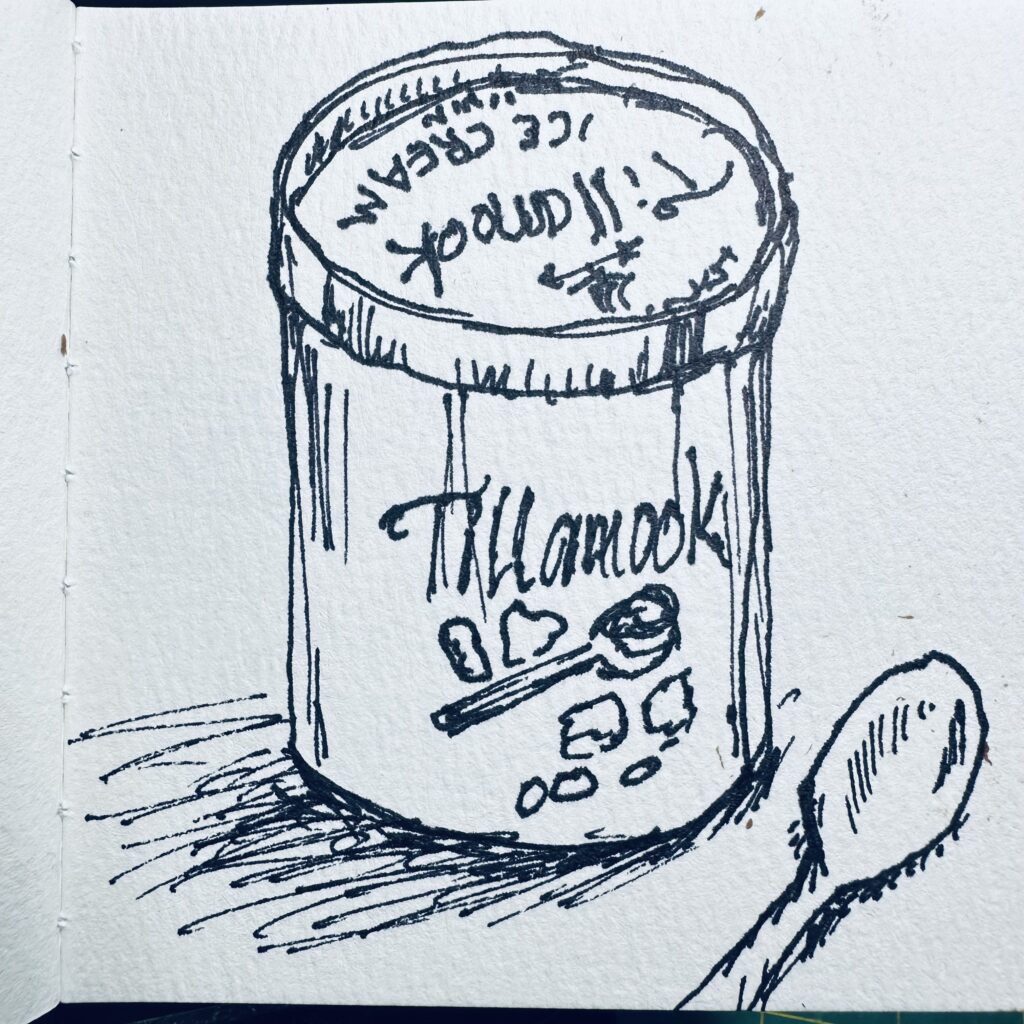 ICE CREAM
Tillamook
Tillamook